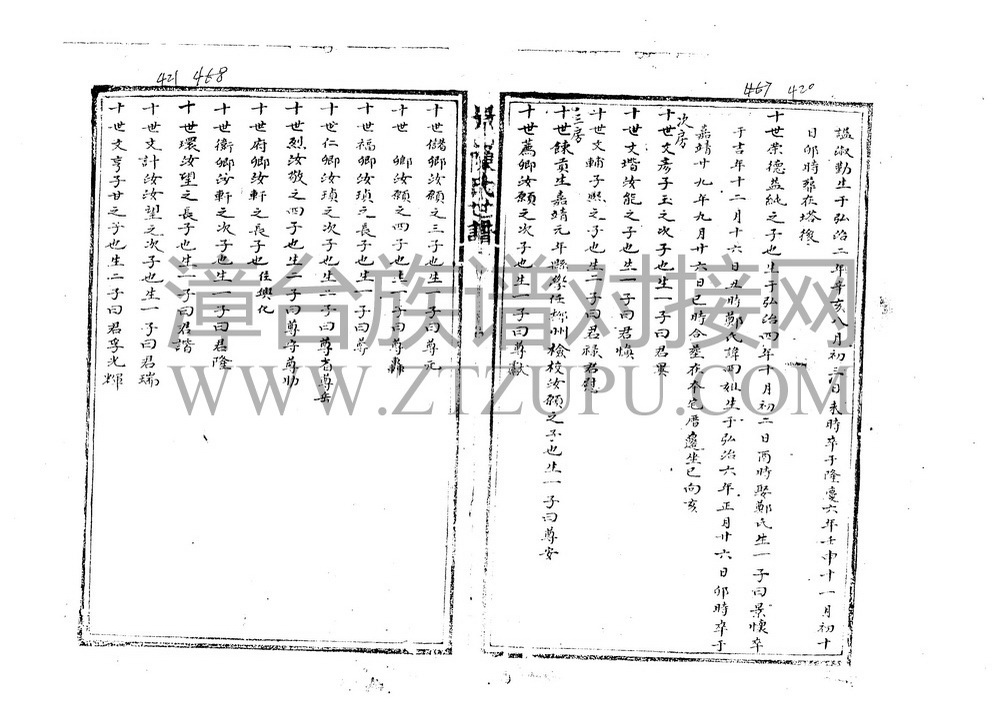 467 420
諡淑勤生于弘治二年辛亥八月初三日未時卒于隆慶六年壬申十一月初十
日卯時葬在塔後
十世崇德益純之子也生于弘治四年十月初二日酉時娶鄭氏生一子曰景懷卒
于吉年十二月十六日丑時鄭氏諱四姐生于弘治六年正月廿六日卯時卒于
嘉靖廿九年九月廿六日巳時合塟在本宅厝邊坐巳向亥
次房
十世文彦子玉之次子也生一子曰君
十世文堦汝能之子也生一子曰君煥
十世文輔子熙之子也生二子曰君祿君
三房
十世餗貢生嘉靖元年縣學任柳州檢校汝願之子也生一子曰尊安
十世薦卿汝願之次子也生一子曰尊獻
陳氏世譜
421 468
十世儲卿汝願之三子也生一子曰尊元
十世 卿汝願之四子也生一子曰尊
十世福卿汝瑱之長子也生一子曰尊
十世仁卿汝瑱之次子也生二子曰尊省尊岳
十世烈汝敬之四子也生二子曰尊守尊助
十世府卿汝軒之長子也任興化
十世衛卿汝軒之次子也生一子曰君隆
十世環汝望之長子也生一子曰君諧
十世文計汝望之次子也生一子曰君瑞
十世文亨子廿之子也生二子曰君孚光輝
漳台族谱对接网
WWW.ZTZUPU.COM